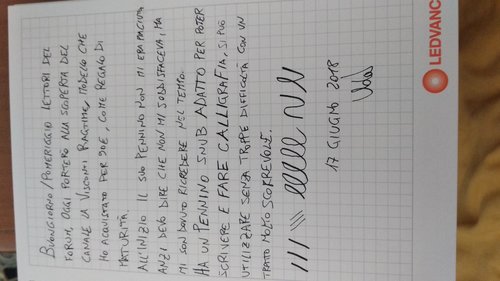 BUONGIORNO/POMERIGGIO LETTORI DEL
FORUM, OGGI PORTERÒ ALLA SCOPERTA DEL
CANALE LA VISCONTI RAGTIME, MODELLO CHE
HO ACQUISTATO PER 90€, COME REGALO DI
MATURITÀ.
ALL'INIZIO IL SUO PENNINO NON MI ERA PIACIUTO
ANZI DEVO DIRE CHE NON MI SODDISFACEVA, MA
MI SON DOVUTO RICREDERE NEL TEMPO.
HA UN PENNINO SNUB ADATTO PER POTER
SCRIVERE E FARE CALLIGRAFIA, SI PUÒ
UTILIZZARE SENZA TROPPE DIFFICOLTÀ CON UN
TRATTO MOLTO SCORREVOLE.
17 GIUGNO 2018
LEDVANC